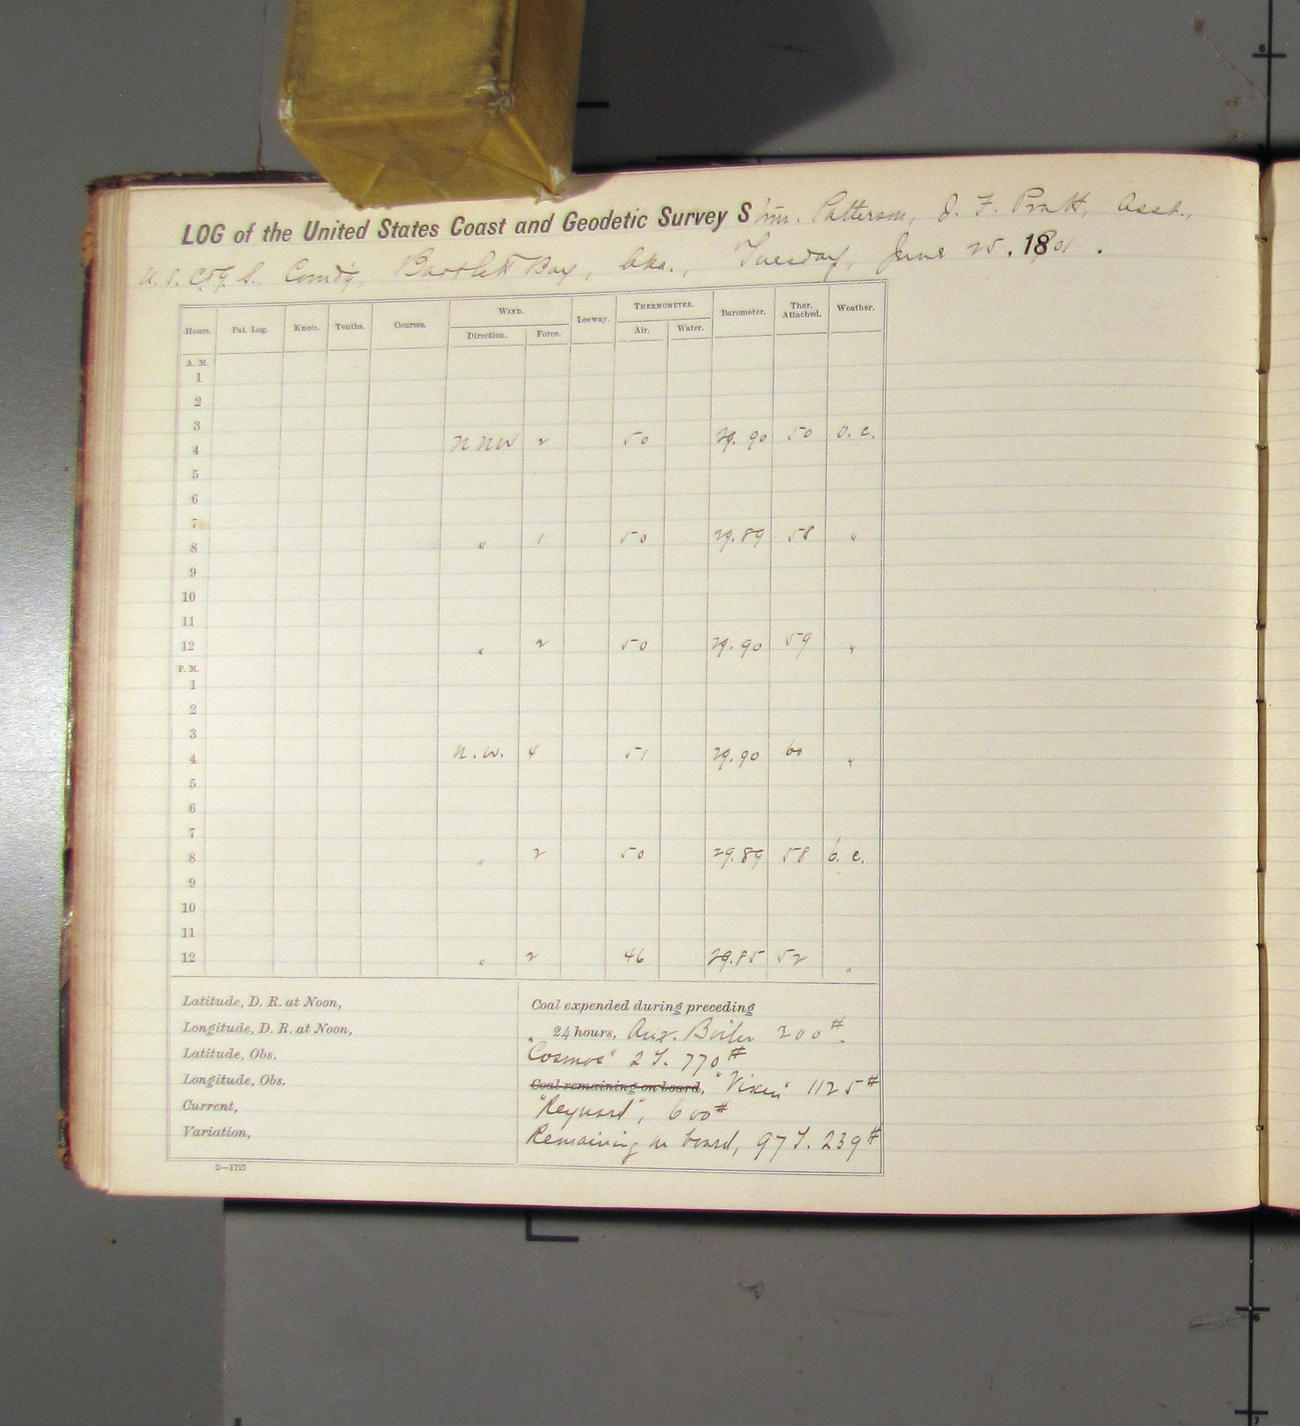 LOG of the United States Coast and Geodetic Survey S'tm. Patterson, J. F. Pratt, Asst.,
U. S. C. & G. S., Comd'g, Bartlett Bay, Aka., Tuesday, June 25. 1901.
Hours. Pat. Log. Knots. Tenths. Courses. WIND. Leeway. THERMOMETER. Barometer. Ther. Attached. Weather.
Direction. Force. Air. Water.
A. M.
1
2
3
4 N NW 2 50 29.90 50 o. c.
5
6
7
8 " 1 50 29.89 58 "
9
10
11
12 " 2 50 29.90 59 "
P. M.
1
2
3
4 N. W. 4 51 29.90 60 "
5
6
7
8 " 2 50 29.89 58 o. c.
9
10
11
12 " 2 46 29.85 52 "
Latitude, D. R. at Noon,
Longitude, D. R. at Noon,
Latitude, Obs.
Longitude, Obs.
Current,
Variation,
2—1727
Coal expended during preceding
24 hours, Aux. Boiler 200#.
"Cosmos" 2 T. 770#
Coal remaining on board, "Vixen" 1125#
"Reynard", 600#
Remaining on board, 97 T. 239#
6
6
7